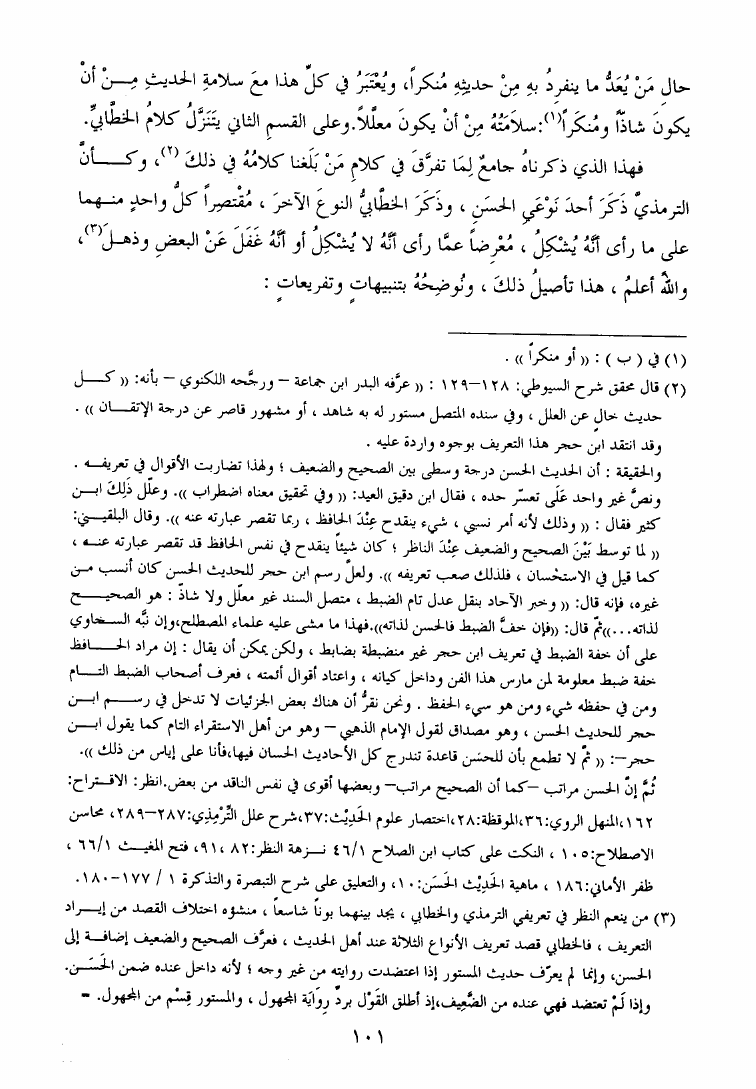 حال مَنْ يُعَدُّ ما ينفردُ بهِ مِنْ حديثِهِ مُنكراً، ويُعْتَبَرُ في كلِّ هذا معَ سلامةِ الحديثِ مِـــنْ أنْ
يكونَ شاذّاً ومُنكَراً(١):سلامَتُهُ مِنْ أنْ يكونَ معلَّلاً.وعلى القسمِ الثاني يتَنَزَّلُ كلامُ الخطَّابيِّ.
فهذا الذي ذكرناهُ جامعٌ لِمَا تفرَّقَ في كلامِ مَنْ بَلَغنا كلامُهُ في ذلكَ (٢)، وكـــأنَّ
الترمذيَّ ذكَرَ أحدَ نَوْعَيِ الحسَنِ ، وذكَرَ الخطَّابيُّ النوعَ الآخرَ ، مُقْتصِراً كلُّ واحدٍ منـهما
على ما رأى أنَّهُ يُشْكِلُ ، مُعْرِضاً عمَّا رأى أنَّهُ لا يُشْكِلُ أو أنَّهُ غَفَلَ عَنْ البعضِ وذهـلَ(٣)،
واللهُ أعلمُ ، هذا تأصيلُ ذلكَ ، ونُوضِحُهُ بتنبيهاتٍ وتفريعاتٍ :
(١) في ( ب ) : (( أو منكراً )) .
(٢) قال محقق شرح السيوطي: ١٢٨-١٢٩ : (( عرَّفه البدر ابن جماعة – ورجَّحه اللكنوي – بأنه: (( كـــل
حديث خالٍ عن العلل ، وفي سنده المتصل مستور له به شاهد ، أو مشهور قاصر عن درجة الإتقـــان )) .
وقد انتقد ابن حجر هذا التعريف بوجوه واردة عليه .
والحقيقة : أن الحديث الحسن درجة وسطى بين الصحيح والضعيف ؛ ولهذا تضاربت الأقوال في تعريفـــه .
ونصَّ غير واحد عَلَى تعسّر حده ، فقال ابن دقيق العيد: (( وفي تحقيق معناه اضطراب )). وعلّل ذَلِكَ ابـــن
كثير فقال : (( وذلك لأنه أمر نسبي ، شيء ينقدح عِنْدَ الحافظ ، ربما تقصر عبارته عنه )). وقال البلقيـــني:
(( لما توسط بَيْنَ الصحيح والضعيف عِنْدَ الناظر ؛ كان شيئاً ينقدح في نفس الحافظ قد تقصر عبارته عنـــه ،
كما قيل في الاستحْسان ، فلذلك صعب تعريفه )). ولعلَّ رسم ابن حجر للحديث الحسن كان أنسب مـــن
غيره، فإنه قال: (( وخبر الآحاد بنقل عدل تام الضبط ، متصل السند غير معلّل ولا شاذّ : هو الصحيـــح
لذاته...))ثمَّ قال: ((فإن خفَّ الضبط فالحسن لذاته)).فهذا ما مشى عليه علماء المصطلح،وإن نبَّه السـخاوي
على أن خفة الضبط في تعريف ابن حجر غير منضبطة بضابط ، ولكن يمكن أن يقال : إن مراد الحـــافظ
خفة ضبط معلومة لمن مارس هذا الفن وداخل كيانه ، واعتاد أقوال أئمته ، فعرف أصحاب الضبط التـــام
ومن في حفظه شيء ومن هو سيء الحفظ . ونحن نقرُّ أن هناك بعض الجزئيات لا تدخل في رســـم ابـــن
حجر للحديث الحسن ، وهو مصداق لقول الإمام الذهبي – وهو من أهل الاستقراء التام كما يقول ابـــن
حجر–: (( ثمَّ لا تطمع بأن للحسَن قاعدة تندرج كل الأحاديث الحسان فيها،فأنا على إياس من ذلك )).
ثُمَّ إنَّ الحسن مراتب –كما أن الصحيح مراتب– وبعضها أقوى في نفس الناقد من بعض.انظر: الاقـتراح:
١٦٢،المنهل الروي:٣٦،الموقظة:٢٨،اختصار علوم الحَدِيْث:٣٧،شرح علل التِّرْمِذي:٢٨٧–٢٨٩، محاسن
الاصطلاح:١٠٥ ، النكت على كتاب ابن الصلاح ٤٦/١ نـــزهة النظر:٨٢ ،٩١، فتح المغيـــث ٦٦/١ ،
ظفر الأماني:١٨٦ ، ماهية الحَدِيْث الحَسَن:١٠، والتعليق على شرح التبصرة والتذكرة ١ / ١٧٧–١٨٠.
(٣) من ينعم النظر في تعريفي الترمذي والخطابي ، يجد بينهما بوناً شاسعاً ، منشؤه اختلاف القصد من إيـــراد
التعريف ، فالخطابي قصد تعريف الأنواع الثلاثة عند أهل الحديث ، فعرَّف الصحيح والضعيف إضافـــة إلى
الحسن، وإنما لم يعرّف حديث المستور إذا اعتضدت روايته من غير وجه ؛ لأنه داخل عنده ضمن الحَسَـــن.
وإذا لَمْ تعتضد فهي عنده من الضَّعِيف،إذ أطلق القَوْل بردِّ رِوَايَة المجهول ، والمستور قِسْم من المجهول. =
١٠١